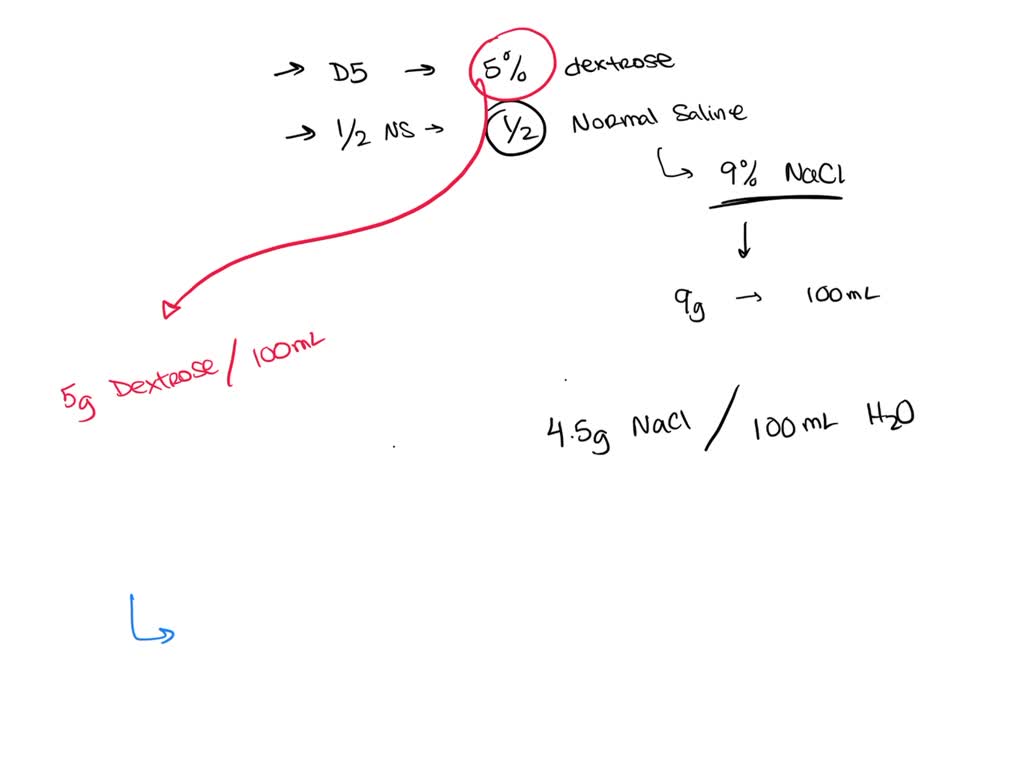 → D5 → 5% dextrose
→ 1/2 NS → 1/2 Normal Saline
↳ 9% NaCl
↓
9g → 100mL
5g Dextrose / 100mL
4.5g NaCl / 100mL H₂O
↳